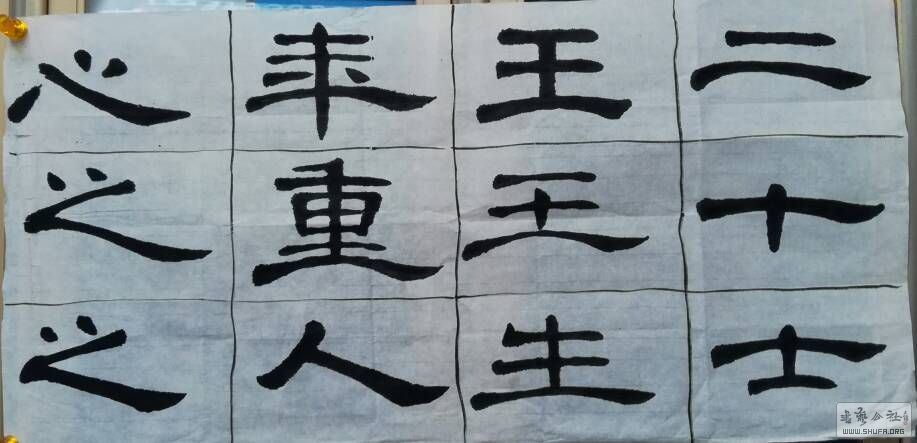 二十士
王王生
年重人
心之之
书艺公社
WWW.SHUFA.ORG